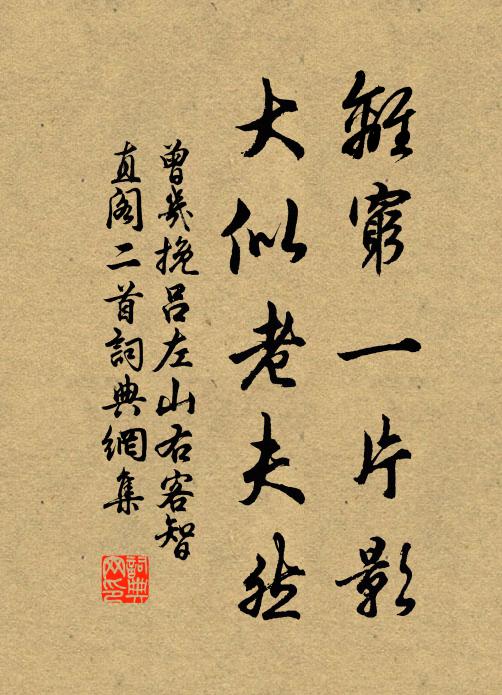 難窮一片影
大似老夫然
曾幾挽呂左山右客智
直閣二首詞典網集
詞典
网印